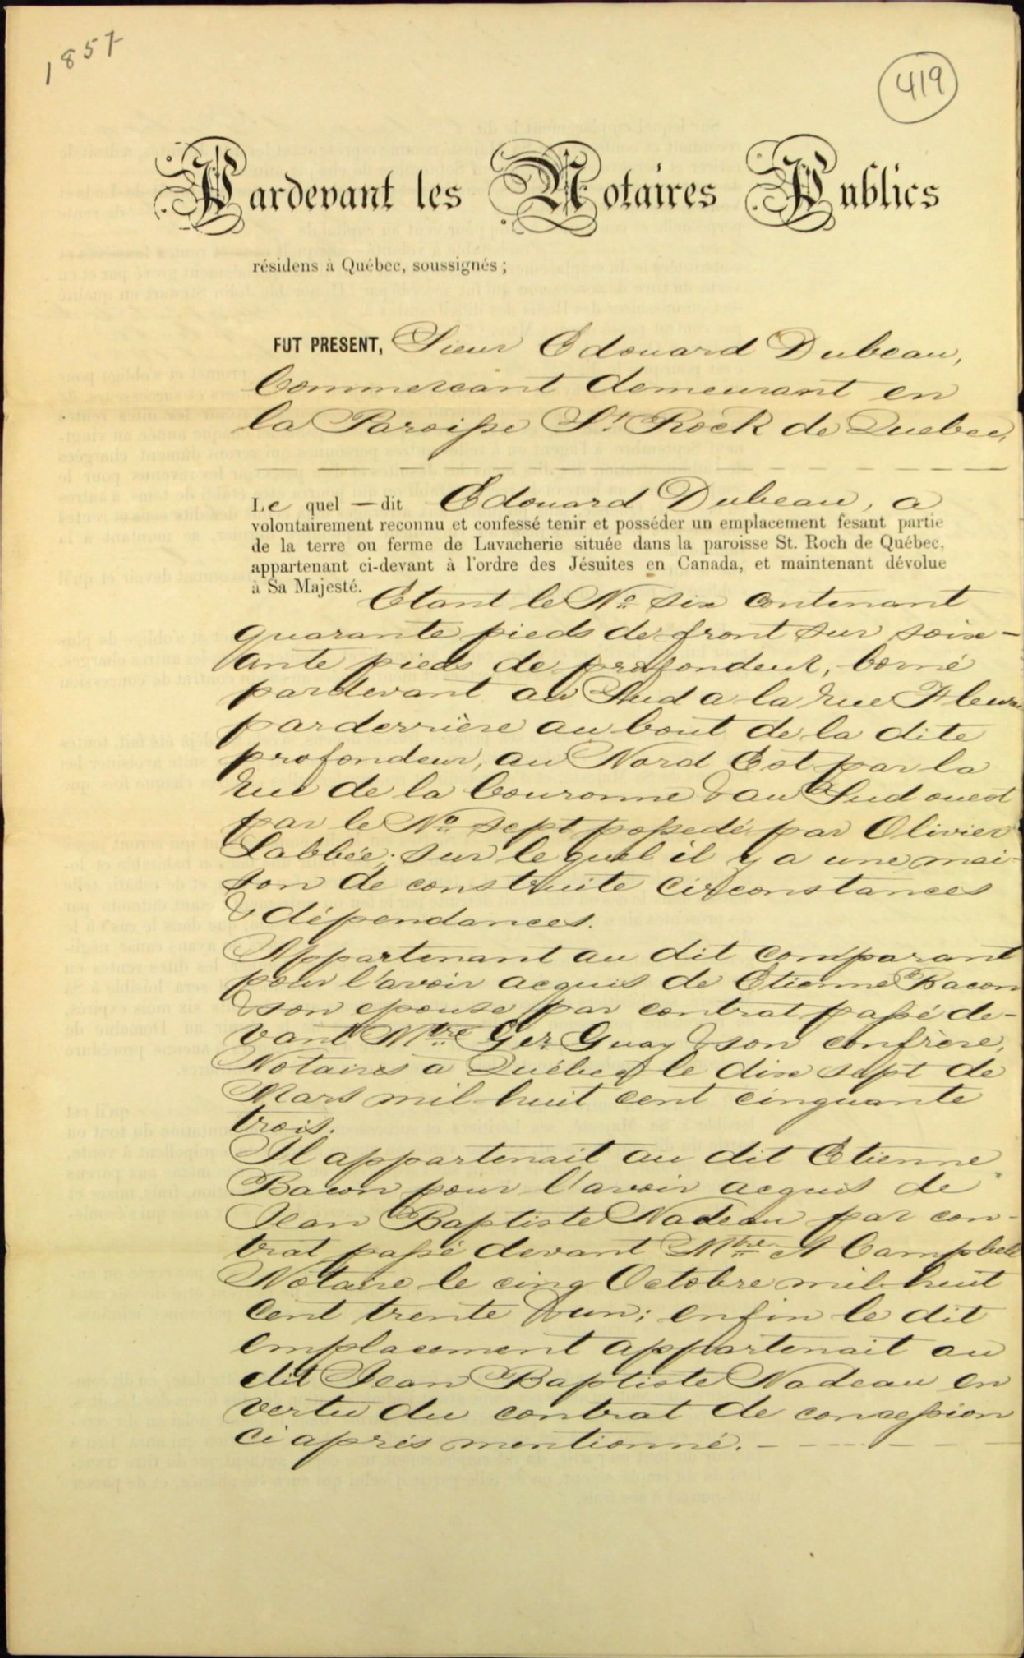 1857
419
Pardevant les Notaires Publics
résidens à Québec, soussignés ;
FUT PRESENT, Sieur Edouard Dubeau,
Commercant demeurant en
la Paroisse St. Rock de Quebec,
Le quel — dit Edouard Dubeau, a
volontairement reconnu et confessé tenir et posséder un emplacement fesant partie
de la terre ou ferme de Lavacherie située dans la paroisse St. Roch de Québec,
appartenant ci-devant à l'ordre des Jésuites en Canada, et maintenant dévolue
à Sa Majesté. Etant le No. six contenant
quarante pieds de front sur soix-
ante pieds de profondeur, borné
pardevant au Sud a la rue Fleurie
parderrière au bout de la dite
profondeur, au Nord Est par la
Rue de la Couronne & au Sud ouest
par le No. sept possedé par Olivier
Labbée; sur le quel il y a une mai-
son de construite circonstances
& dépendances.
Appartenant au dit comparant
pour l'avoir acquis de Etienne Bacon
& son epouse par contrat passé de-
vant Mtre Ger Guay & son confrère,
Notaires à Québec le dix sept de
Mars mil-huit cent cinquante
trois.
Il appartenait au dit Etienne
Bacon pour l'avoir acquis de
Jean Baptiste Nadeau par con-
trat passé devant Mtre A Campbell
Notaire le cinq Octobre mil-huit
Cent trente & un; enfin le dit
emplacement appartenait au
dit Jean Baptiste Nadeau en
vertu du contrat de concession
ci après mentionné.